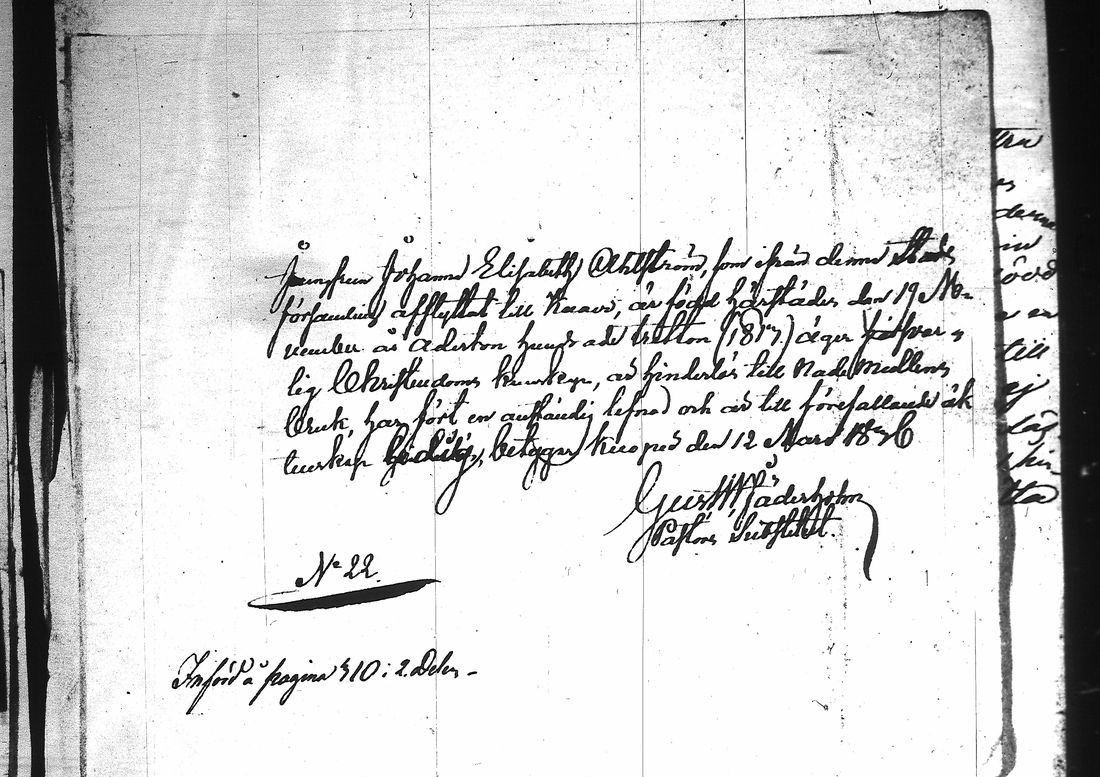 Jungfrun Johanna Elisabeth Ahlström, som ifrån denna Stads
församling afflyttat till , är född härstädes den 19 No-
vember år Aderton hundrade tretton (1813,) äger
lig Christendoms kunskap, är hinderlös till Nade Medlens
bruk, har fört en anständig lefnad och är till förefallande äk
tenskap ledig, betygar Kuopio den 12 Mars 1836
Gust W Päderholm
Pastors Substitut.
No 22.
Införd å pagina 310 i 2. Delen
tra
es
denna
in
till
ej